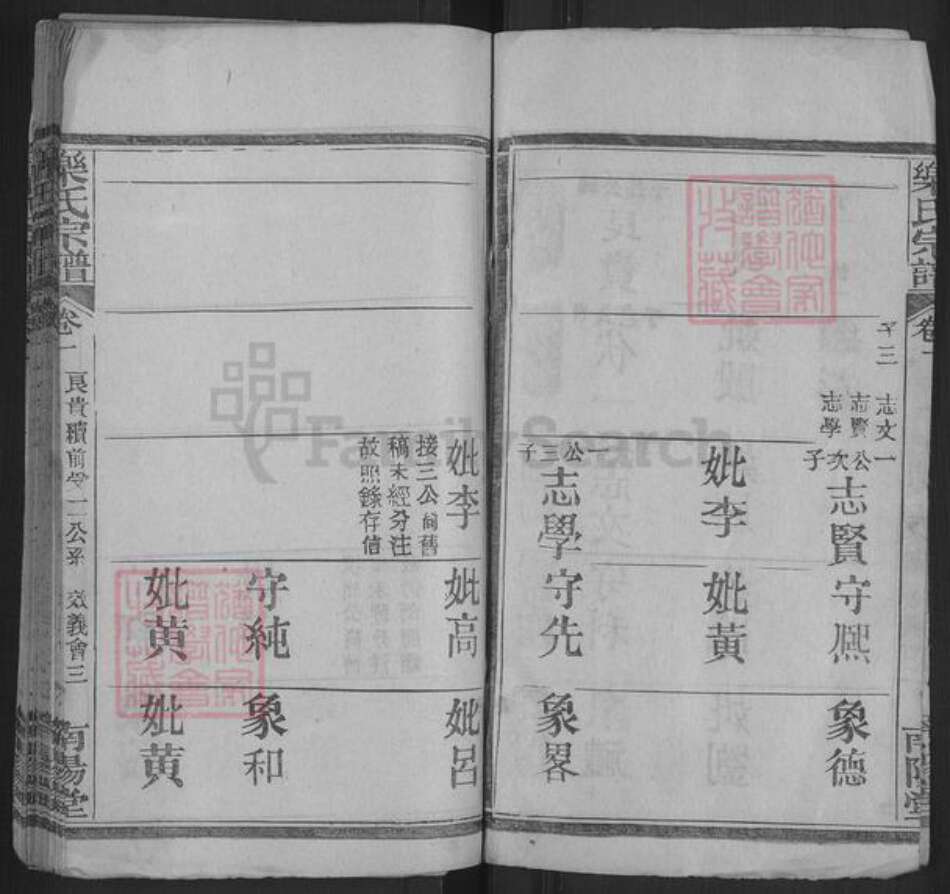 樂氏宗譜
卷一
子三
志文
志賢
志學
一公次子
志賢
守熈
象德
妣李
妣黃
一公三子
志學
守先
象畧
妣李
妣高
妣呂
接三公尙舊
稿未經分注
故照錄存信
守純
象和
妣黄
妣黄
樂氏宗譜
卷一
良貴積前
二公系
義會三
南陽堂
南陽堂
FamilySearch